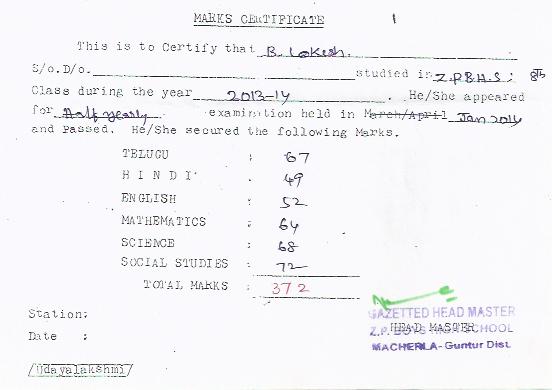 MARKS CERTIFICATE
This is to Certify that B. Lokesh.
S/o.D/o. studied in Z.P.B.H.S: 8Th
Class during the year 2013-14 . He/She appeared
for Half yearly examination held in March/April Jan 2014
and Passed. He/She secured the following Marks.
TELUGU : 67
HINDI : 49
ENGLISH : 52
MATHEMATICS : 64
SCIENCE : 68
SOCIAL STUDIES : 72
TOTAL MARKS : 372
Station:
GAZETTED HEAD MASTER
HEAD MASTER
Z.P. BOYS HIGH SCHOOL
Date :
MACHERLA - Guntur Dist.
/Udayalakshmi/